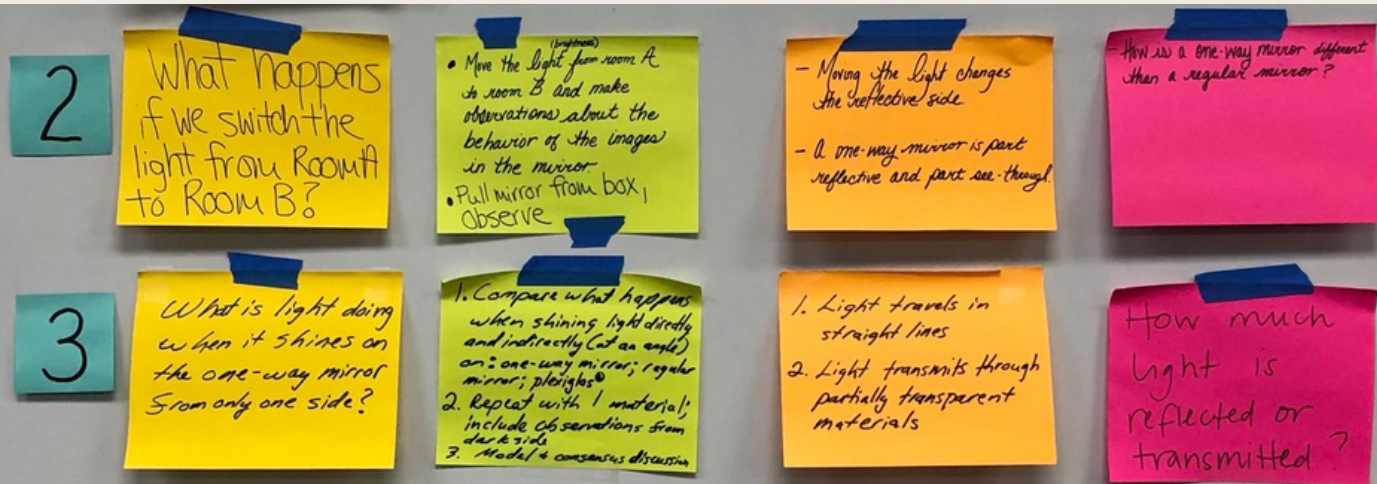 2
What happens
if we switch the
light from Room A
to Room B?
(brightness)
• Move the light from room A
to room B and make
observations about the
behavior of the images
in the mirror.
• Pull mirror from box,
observe
- Moving the light changes
the reflective side.
- A one-way mirror is part
reflective and part see-through.
- How is a one-way mirror different
than a regular mirror?
3
What is light doing
when it shines on
the one-way mirror
from only one side?
1. Compare what happens
when shining light directly
and indirectly (at an angle)
on: one-way mirror; regular
mirror; plexiglas®
2. Repeat with 1 material;
include observations from
dark side
3. Model + consensus discussion
1. Light travels in
straight lines
2. Light transmits through
partially transparent
materials
How much
light is
reflected or
transmitted?